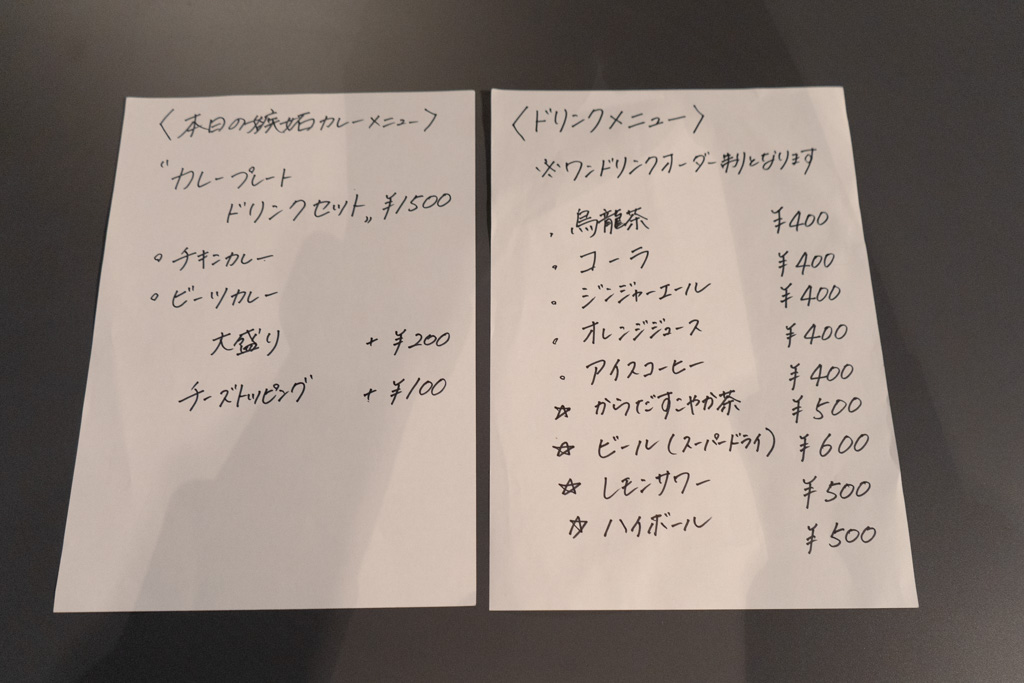 〈本日の嫉妬カレーメニュー〉
"カレープレート
ドリンクセット„ ¥1500
○ チキンカレー
○ ビーツカレー
大盛り + ¥200
チーズトッピング + ¥100
〈ドリンクメニュー〉
※ワンドリンクオーダー制となります
。烏龍茶 ¥400
。コーラ ¥400
。ジンジャーエール ¥400
。オレンジジュース ¥400
。アイスコーヒー ¥400
☆ からだすこやか茶 ¥500
☆ ビール(スーパードライ) ¥600
☆ レモンサワー ¥500
☆ ハイボール ¥500